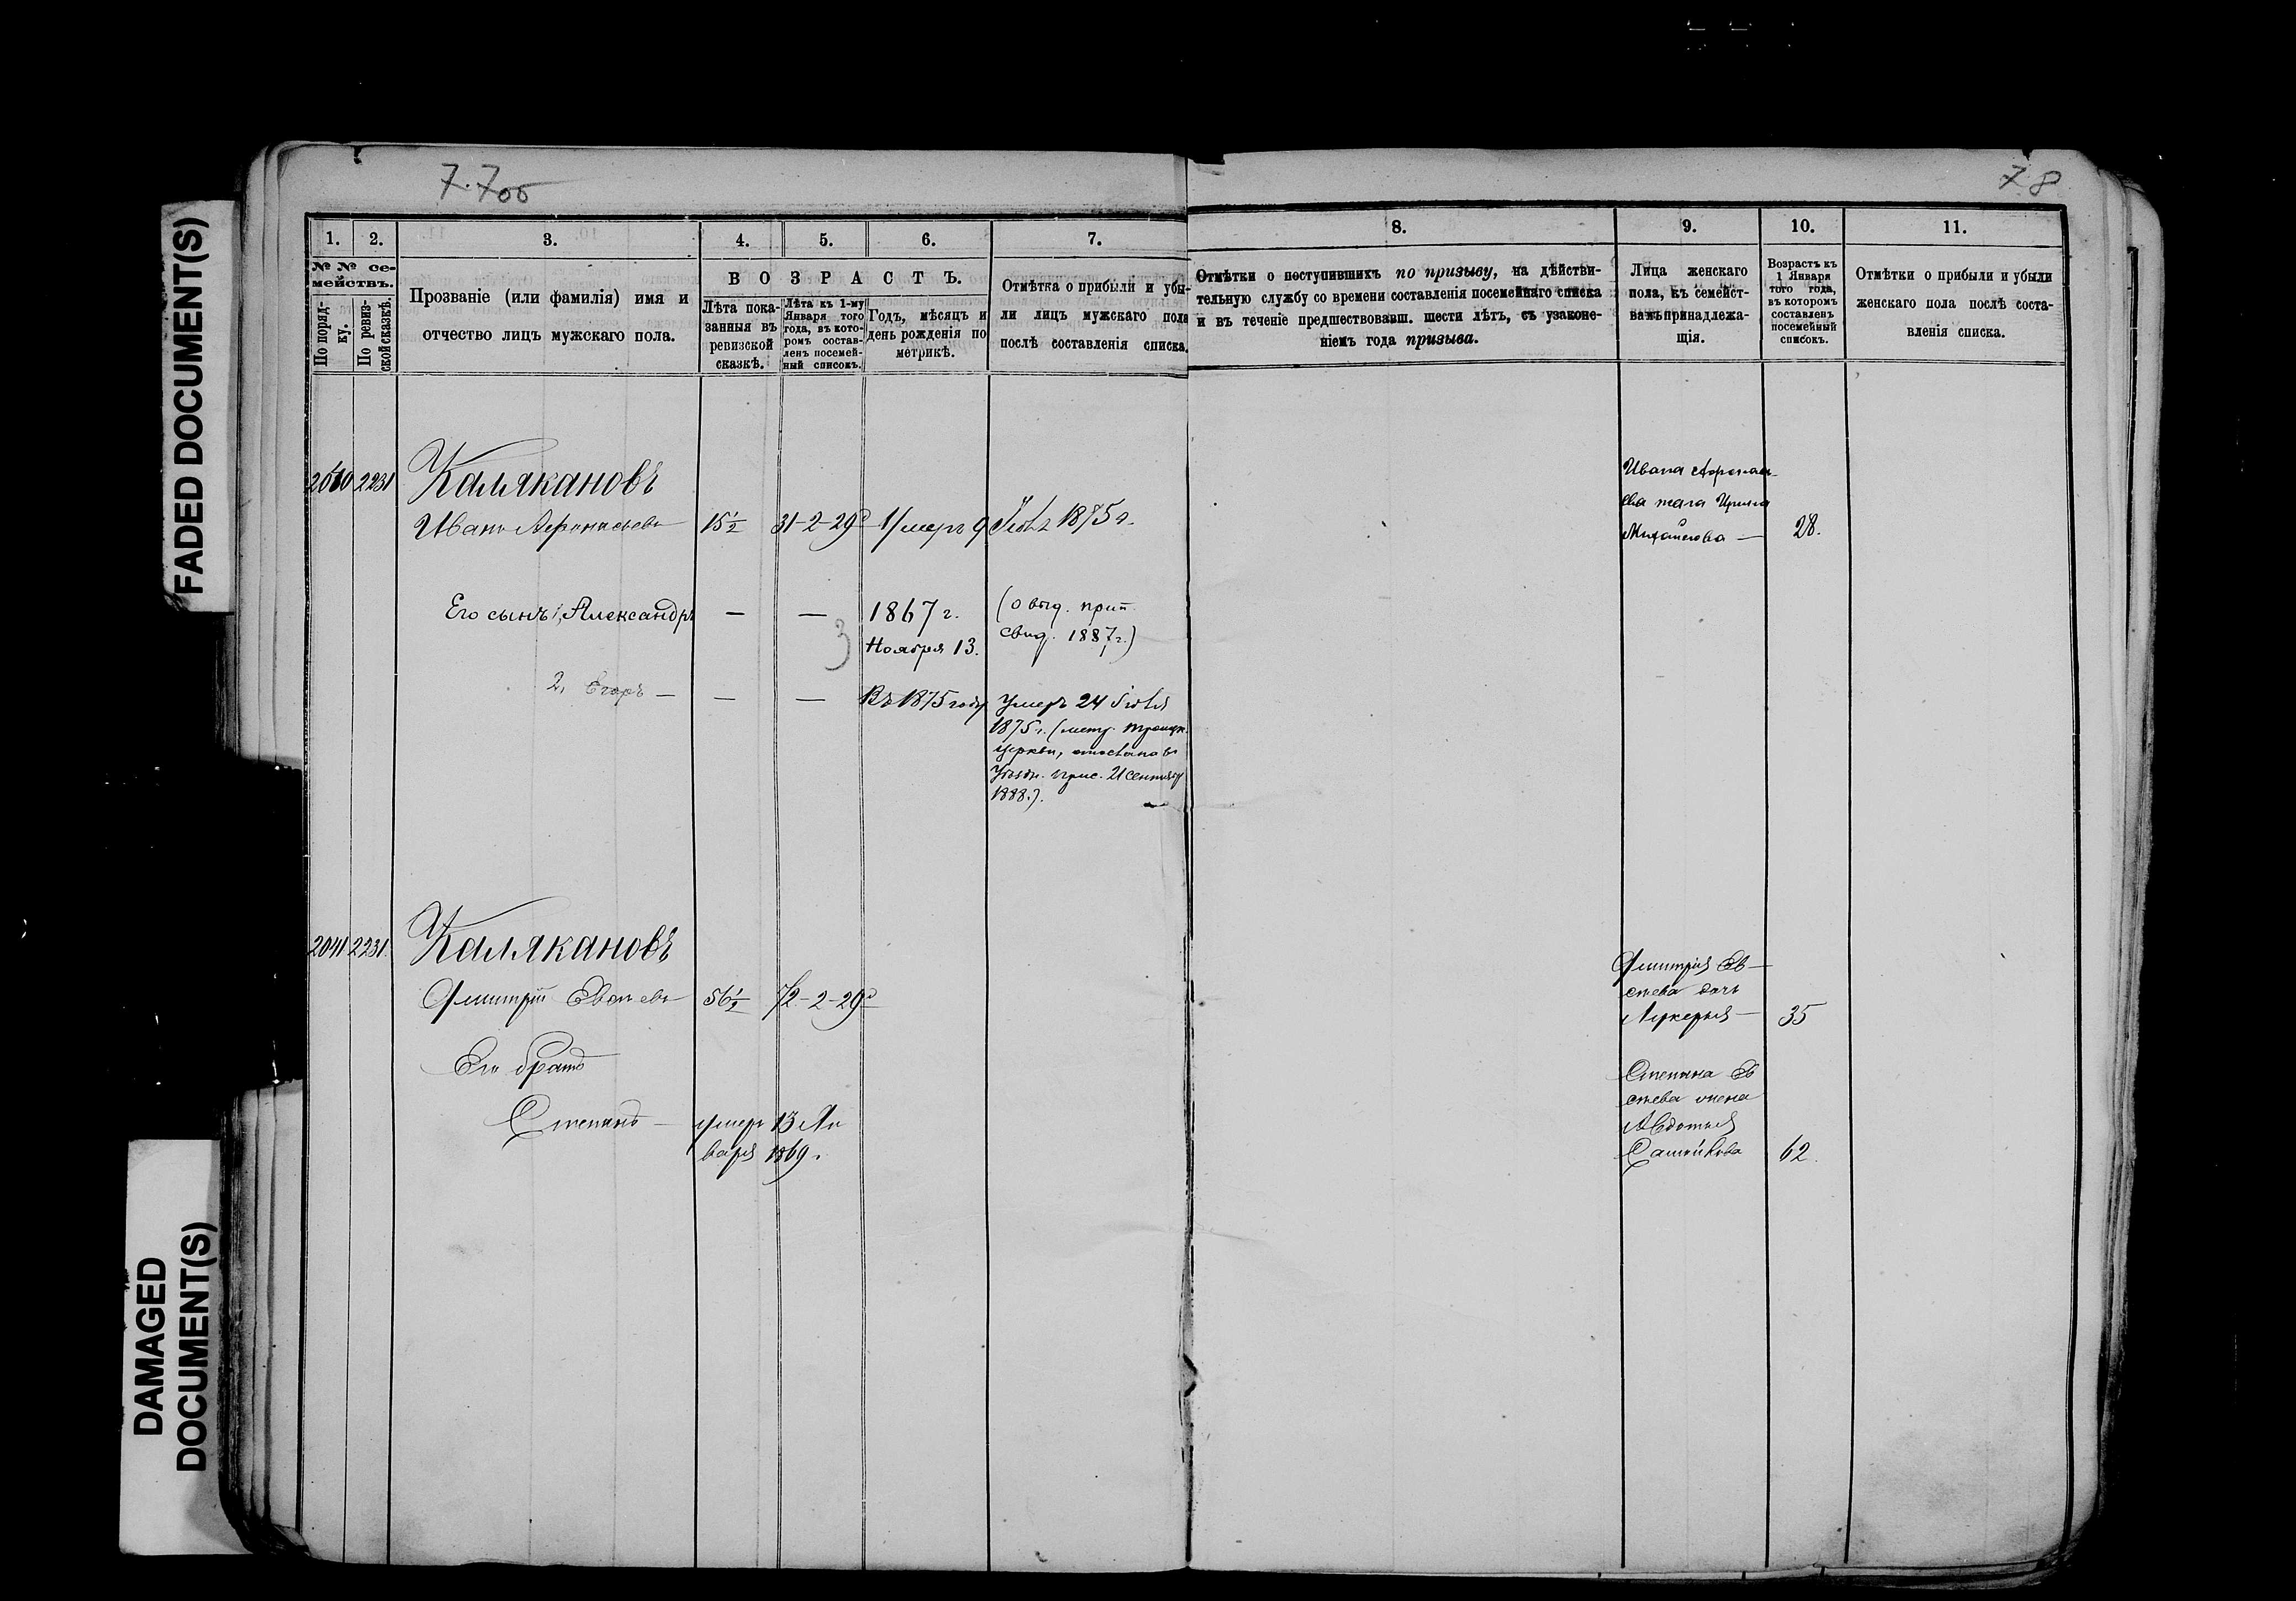 FADED DOCUMENT(S)
DAMAGED
DOCUMENT(S)
7.700
78
1.
2.
3.
4.
5.
6.
7.
8.
9.
10.
11.
№ № се-
мействъ.
По поряд-
ку.
По ревиз-
ской сказкѣ.
Прозваніе (или фамилія) имя и
отчество лицъ мужскаго пола.
ВОЗРАСТЪ.
Лѣта пока-
занныя въ
ревизской
сказкѣ.
Лѣта къ 1-му
Января того
года, въ кото-
ромъ состав-
ленъ посемей-
ный списокъ.
Годъ, мѣсяцъ и
день рожденія по
метрикѣ.
Отмѣтка о прибыли и убы-
ли лицъ мужскаго пола
послѣ составленія списка.
Отмѣтки о поступившихъ по призыву, на дѣйстви-
тельную службу со времени составленія посемейнаго списка
и въ теченіе предшествовавш. шести лѣтъ, съ узаконе-
ніемъ года призыва.
Лица женскаго
пола, къ семейст-
вамъ принадлежа-
щія.
Возрастъ къ
1 Января
того года,
въ которомъ
составленъ
посемейный
списокъ.
Отмѣтки о прибыли и убыли
женскаго пола послѣ соста-
вленія списка.
2040 2231 Калякановъ
Иванъ Афонасьевъ 15½ 31-2-29д Умеръ 9 Іюля 1875 г.
Ивана Афонась-
ева жена Ирина
Михайлова — 28.
Его сынъ 1, Александръ — — 1867 г.
Ноября 13.
(о выд. прип.
свид. 1887 г.)
3
2, Егоръ — — — Въ 1875 году
Умеръ 24 Іюля
1875 г. (метр. Троицк.
церкви,
1888.).
2041 2231. Калякановъ
Дмитрій Евсѣевъ 56½ 72-2-29д
Дмитрія Ев-
сѣева дочь
Лукерья — 35
Его братъ
Степанъ — умеръ 13 Ян
варя 1869.
Степана Ев
сѣева жена
Авдотья
Самойлова 62.